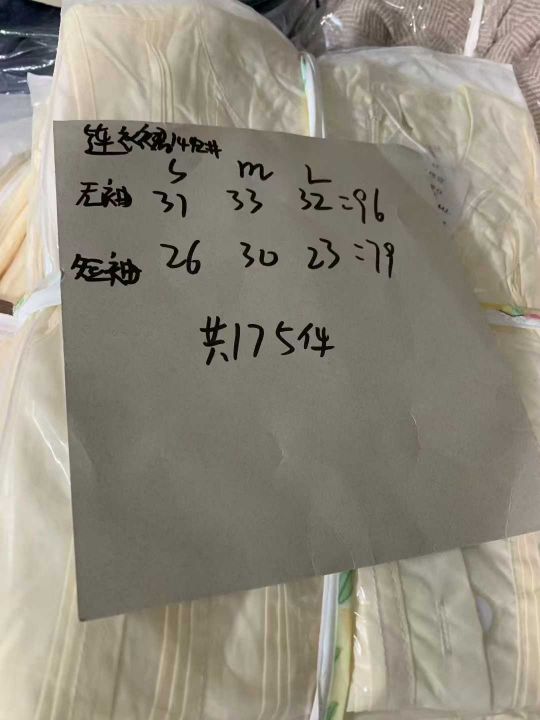 S M L
无袖 31 33 32=96
短袖 26 30 23=79
共175件